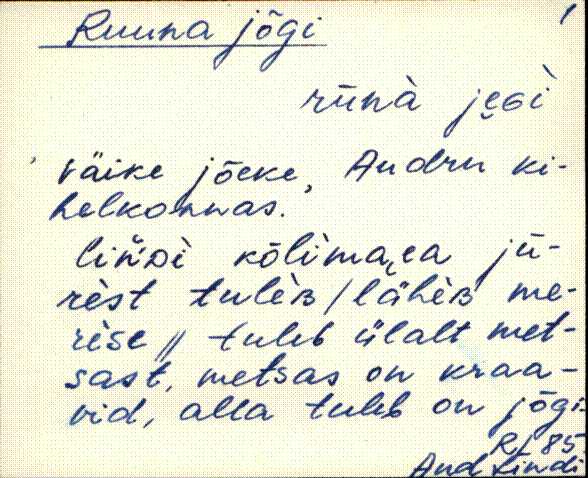 Ruuna jõgi
1
rūnà
väike jõeke, Audru ki-
helkonnas.
jū-
rèst tulèʙ / läheʙ me-
rèse // tuleb ülalt met-
sast, metsas on kraa-
vid, alla tuleb on jõgi.
RL 85
Aud Lindi